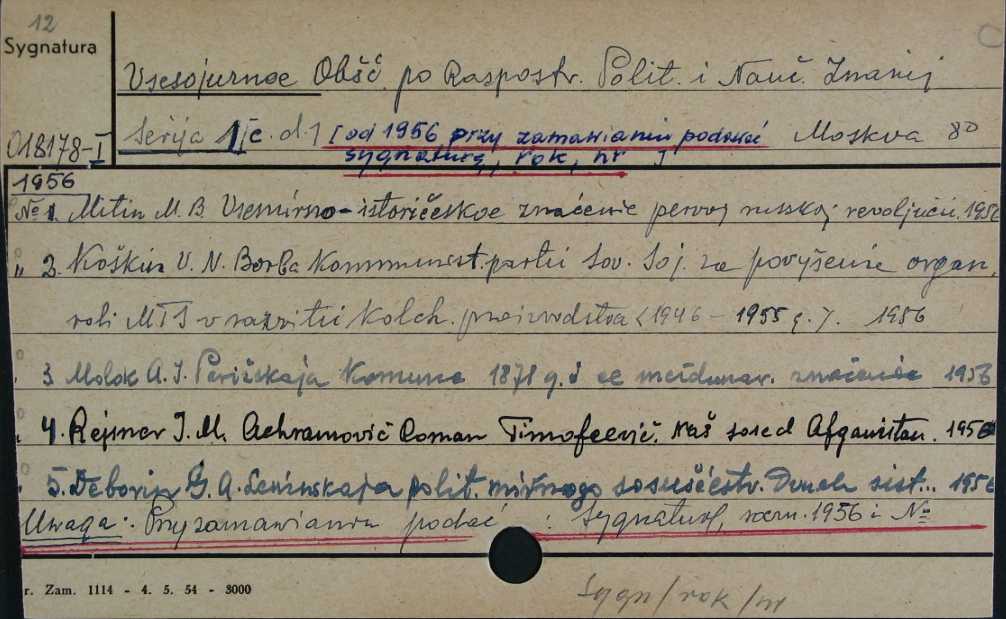 12
Sygnatura
Vsesojuznoe Obšč. po Rasprostr. Polit. i Nauč. Znanij
018178-I Serija 1 [c.d.] [od 1956 przy zamawianiu podawać Moskva 8°
sygnaturę, rok, nr ]
1956
№ 1. Mitin M. B. Vsemirno-istoričeskoe značenie pervoj russkoj revoljucii. 1956
„ 2. Koškin V. N. Borba Kommunist. partii Sov. Soj. za povyšenie organ.
roli MTS v razvitii kolch. proizvodstva <1946 - 1955 g.>. 1956
3 Molok A. I. Parižskaja Komuna 1871 g. i ee meždunar. značenie 1956
„ 4. Rejsner I. M. Achramovič Roman Timofeevič. Naš sosed Afganistan. 1956
5. Deborin G. A. Leninskaja polit. mirnogo sosuščestv. Dvuch sist.. 1956
Uwaga: Przy zamawianiu podać : Sygnaturę, 1956 i №
r. Zam. 1114 - 4. 5. 54 - 3000
Sygn/rok/nr